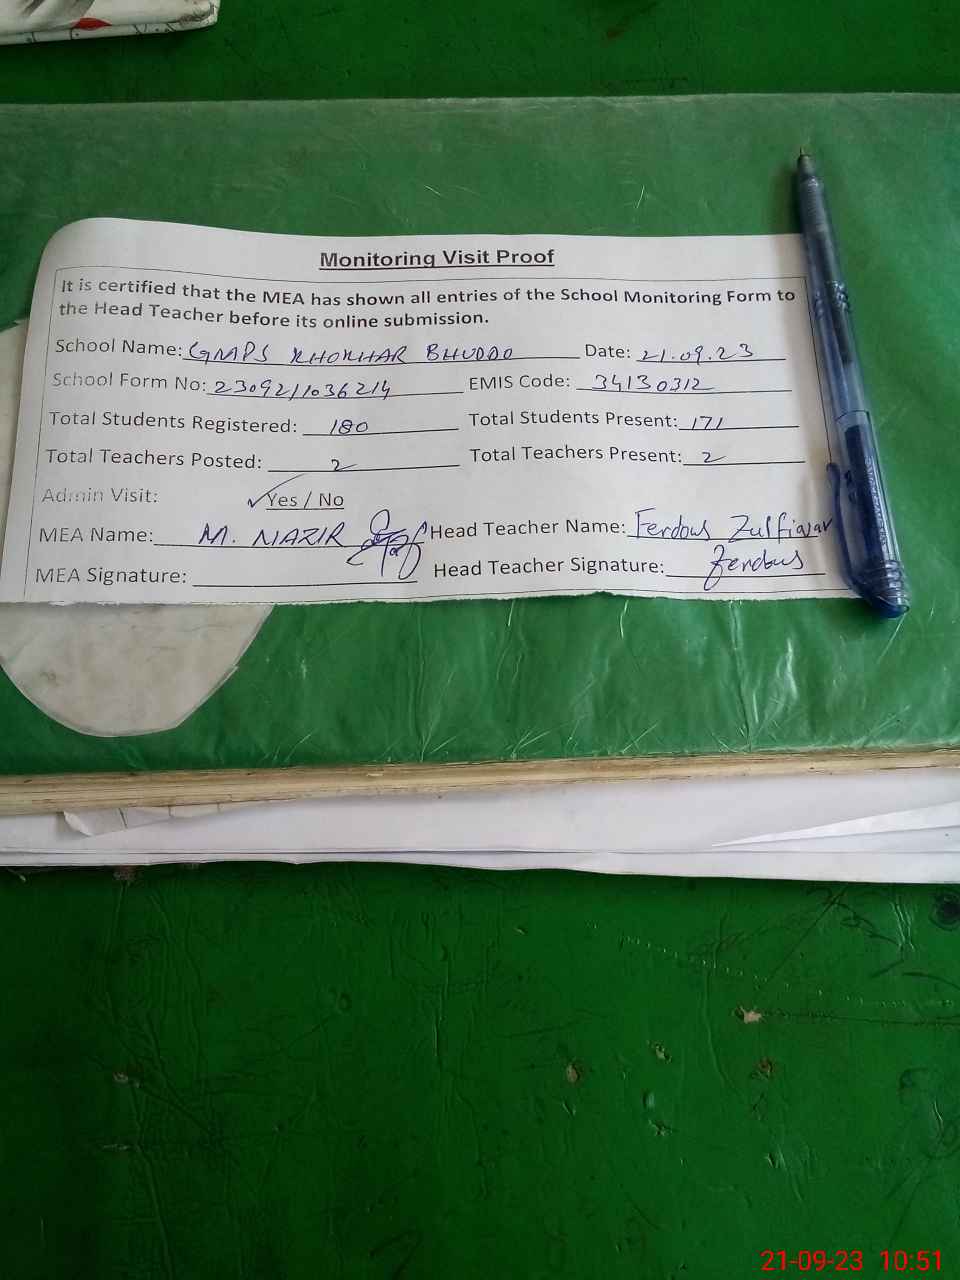 Monitoring Visit Proof
It is certified that the MEA has shown all entries of the School Monitoring Form to
the Head Teacher before its online submission.
School Name: GMPS KHOKHAR BHUDDO Date: 21.09.23
School Form No: 2309211036214 EMIS Code: 34130312
Total Students Registered: 180 Total Students Present: 171
Total Teachers Posted: 2 Total Teachers Present: 2
Admin Visit: ✓Yes / No
MEA Name: M. NAZIR Head Teacher Name: Ferdous Zulfiqar
MEA Signature: Head Teacher Signature: Ferdous
21-09-23 10:51